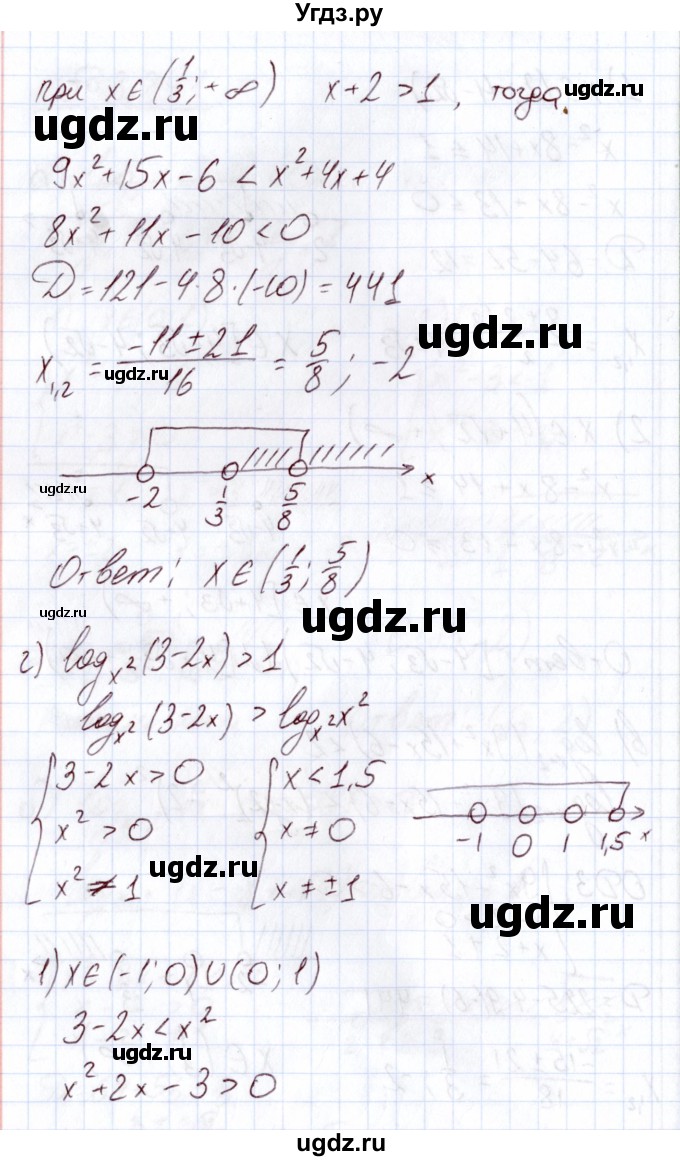 Угдз.ру
при x∈(1/3; +∞) x+2>1, тогда
ugdz.ru
ugdz.ru
9x²+15x-6 < x²+4x+4
8x²+11x-10<0
D=121-4·8·(-10)=441
ugdz.ru
x₁,₂ = (-11±21)/16 = 5/8; -2
ugdz.ru
-2 1/3 5/8 x
ugdz.ru
Ответ: x∈(1/3; 5/8)
ugdz.ru
ugdz.ru
г) log_x²(3-2x)>1
log_x²(3-2x) > log_x² x²
{3-2x>0 {x<1,5
x²>0 x≠0
x²≠1 x≠±1
-1 0 1 1,5 x
ugdz.ru
ugdz.ru
1) x∈(-1; 0)∪(0; 1)
3-2x<x²
ugdz.ru
x²+2x-3>0
ugdz.ru